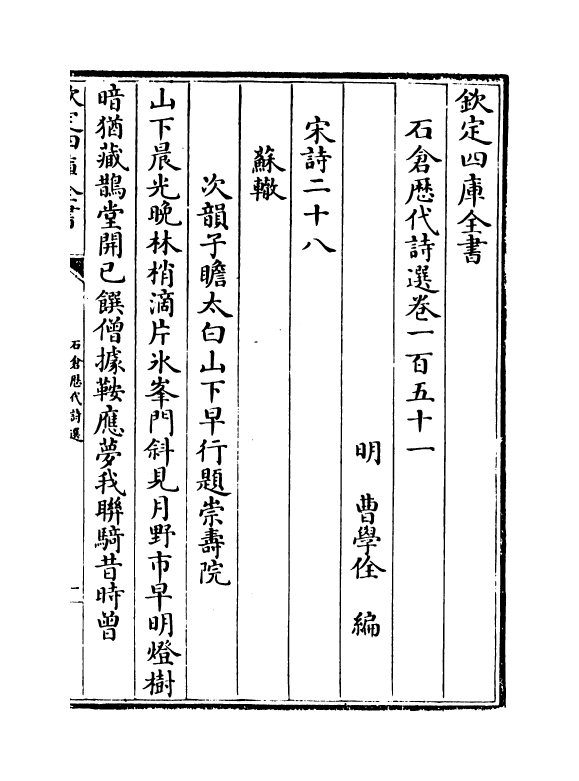 欽定四庫全書
石倉歴代詩選卷一百五十一
明 曹學佺 編
宋詩二十八
蘇轍
次韻子瞻太白山下早行題崇壽院
山下晨光晚林梢滴片氷峯門斜見月野市早明燈樹
暗猶藏鵲堂開已饌僧據鞍應夢我聯騎昔時曾
欽定四庫全書
石倉歴代詩選